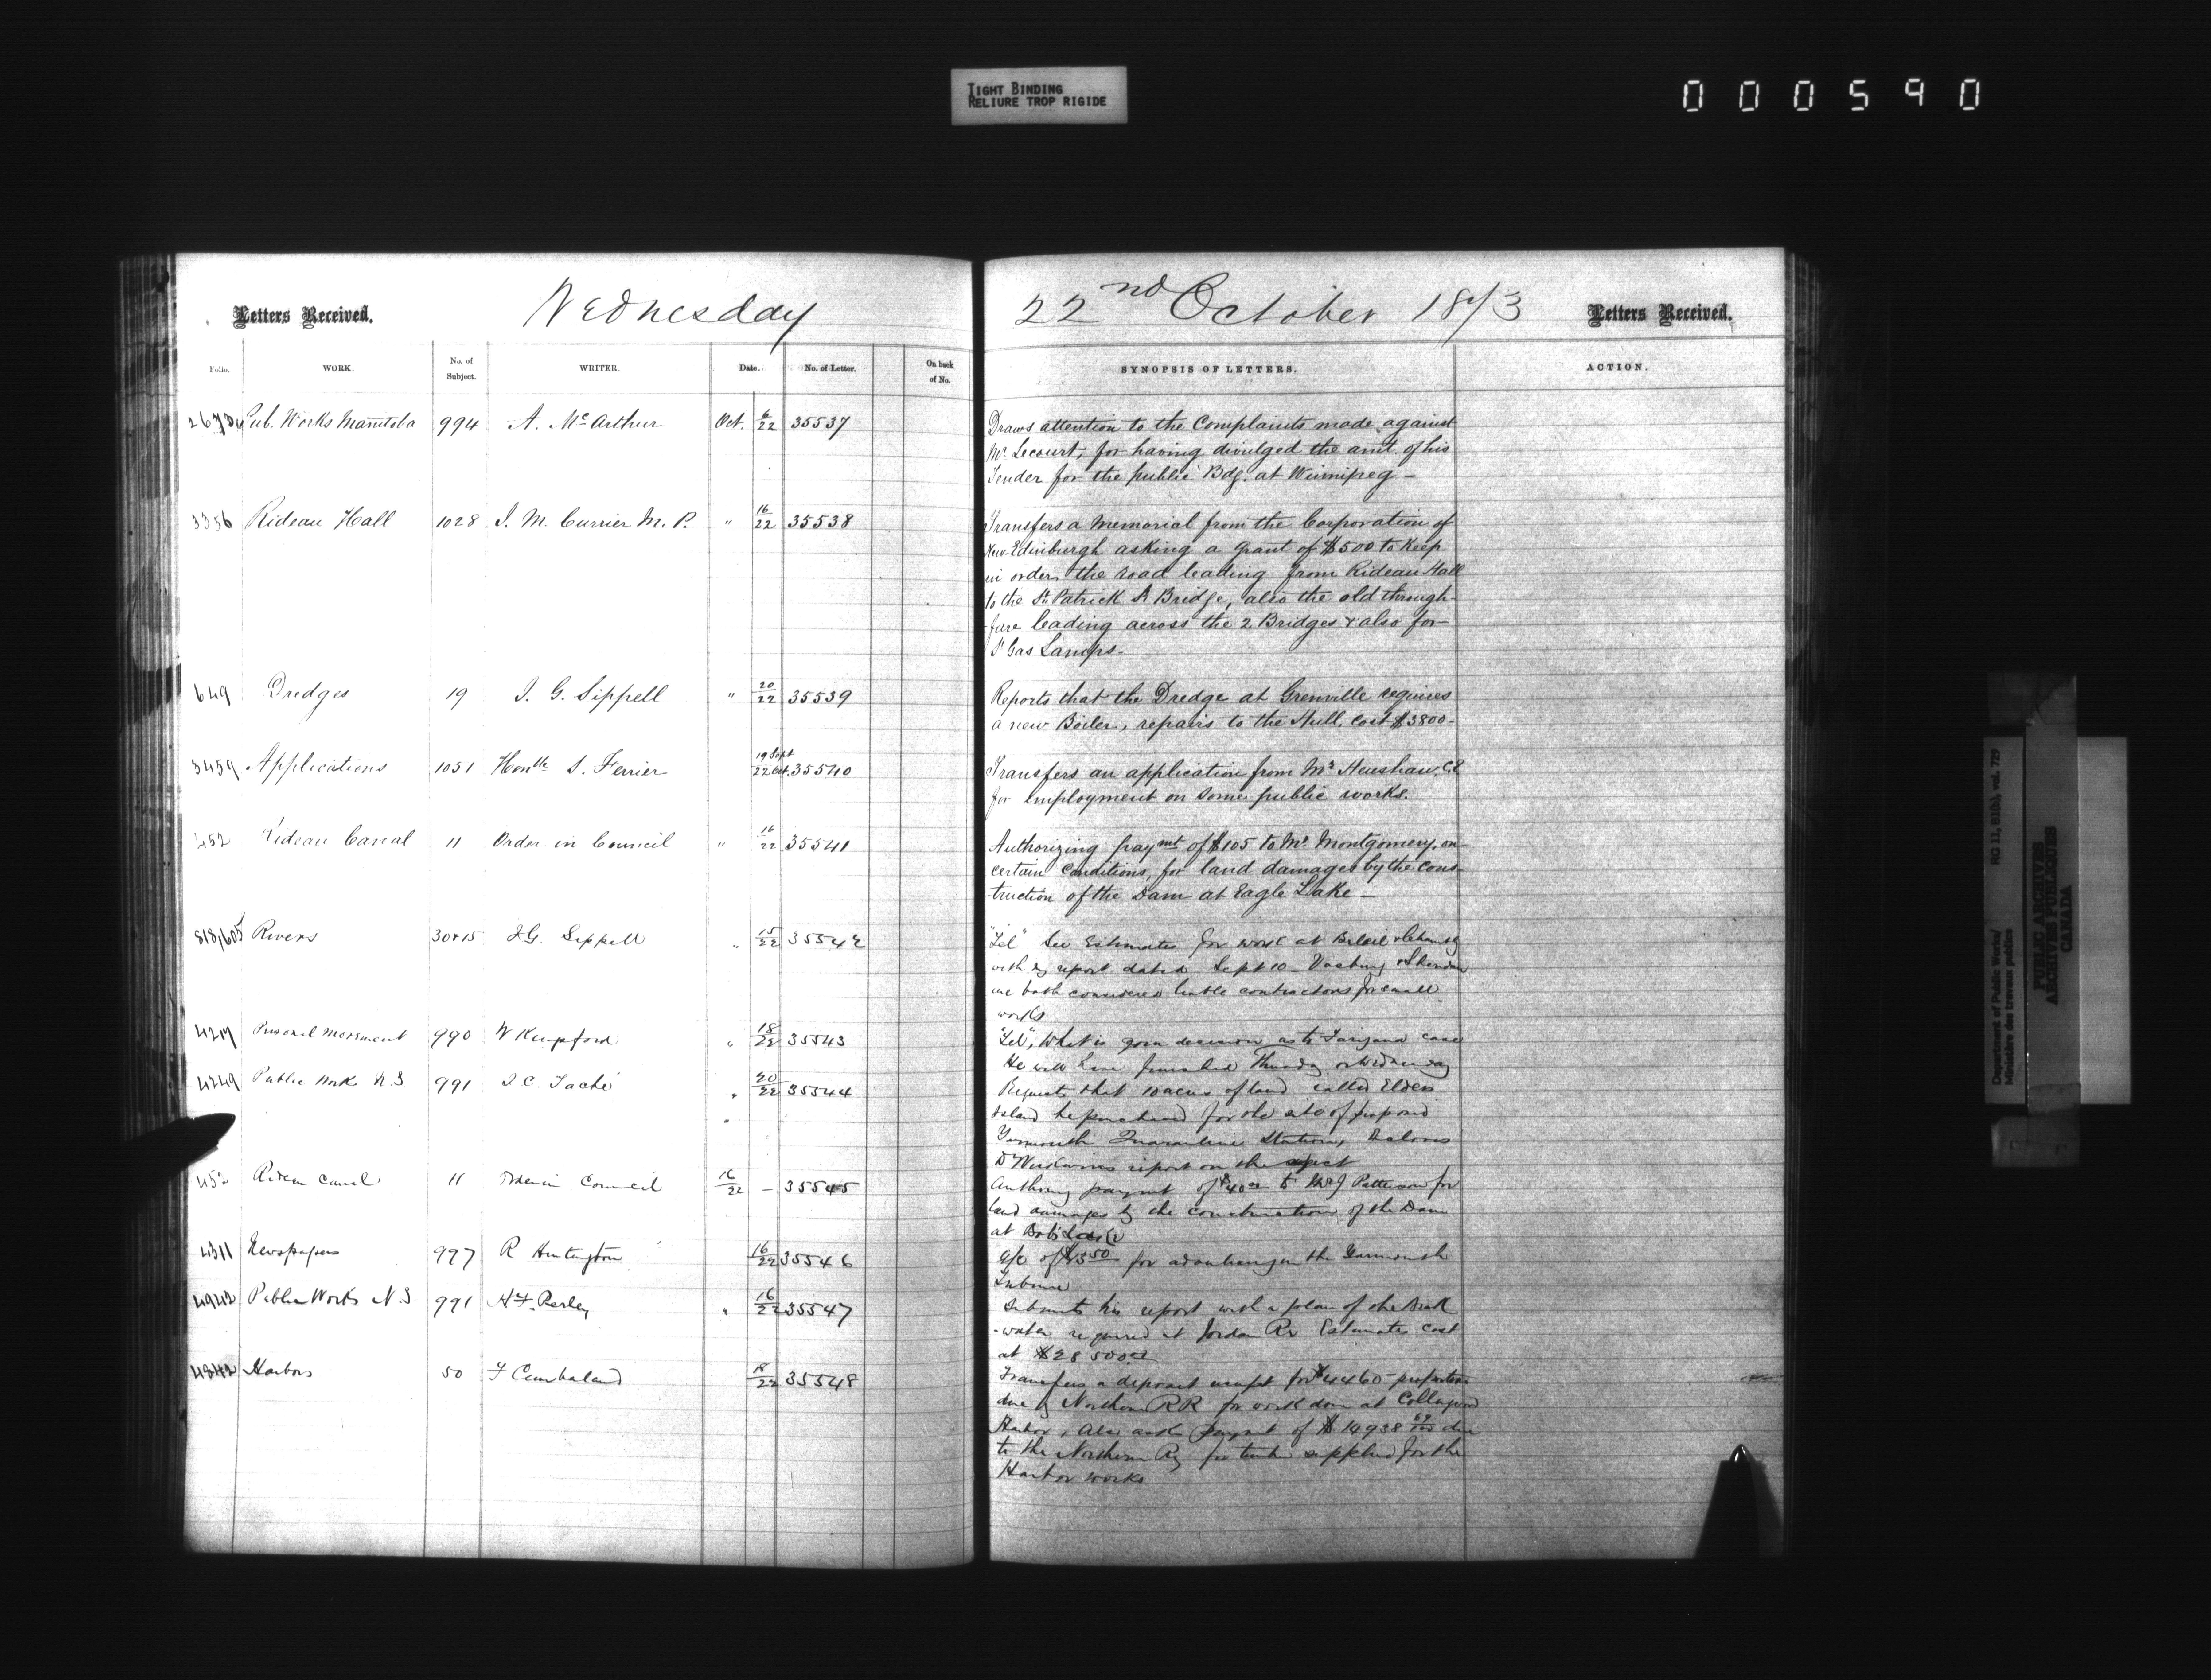 TIGHT BINDING
RELIURE TROP RIGIDE
000590
Letters Received.
Wednesday
22nd October 1873
Letters Received.
Folio. WORK. No. of Subject. WRITER. Date. No. of Letter. On back of No.
SYNOPSIS OF LETTERS. ACTION.
Pub. Works Manitoba 994 A. McArthur Oct. 6/22 35537
Draws attention to the Complaints made against
Mr. Lecourt, for having divulged the amt. of his
Tender for the public Bdg. at Winnipeg —
3356 Rideau Hall 1028 J. M. Currier M. P. " 16/22 35538
Transfers a Memorial from the Corporation of
New Edinburgh asking a grant of $500 to keep
in order the road leading from Rideau Hall
to the St Patrick St Bridge, also the old through-
fare leading across the 2 Bridges & also for
Gas Lamps —
649 Dredges 19 J. G. Sippell " 20/22 35539
Reports that the Dredge at Grenville requires
a new Boiler, repairs to the Hull, cost $3800 —
3459 Applications 1051 Honble J. Ferrier 19 Sept 22 Oct. 35540
Transfers an application from Mr Henshaw C.E
for employment on some public works.
452 Rideau Canal 11 Order in Council " 16/22 35541
Authorizing paymt of $105 to Mr Montgomery, on
certain conditions, for land damages by the cons-
truction of the Dam at Eagle Lake —
818,605 Rivers 30&15 J G. Sippell " 15/22 35542
"Tel" See Estimates for work at Beloeil &
with my report dated Sept 10 —
are both considered contractors for small
works
4217 Personal Movement 990 W Kingsford " 18/22 35543
"Tel", What is your decision as to case
He will have finished Thursday or Wednesday
4249 Public Works N.S 991 J C. Taché " 20/22 35544
Requests that 10 acres of land called Elders
Island be purchased for the site of proposed
Yarmouth Quarantine Station, Encloses
report on the subject
452 Rideau Canal 11 Order in Council 16/22 — 35545
Authorizing payment of $40 to J Patterson for
land damages by the construction of the Dam
at Bobs Lake
4311 Newspapers 997 R Huntington 16/22 35546
a/c of $350 for advertising in the Yarmouth
Tribune
4942 Public Works N.S. 991 H F. Perley " 16/22 35547
Submits his report with a plan of the Break
-water required at Jordan Rr Estimates cost
at $28500
4842 Harbors 50 F Cumberland 35548
Transfers a deposit receipt for $4460 — proportion
due by Northern RR for work done at Collingwood
Harbor, Also asks payment of $14938 69/100 due
to the Northern Ry for timber supplied for the
Harbor works
Department of Public Works/
Ministère des travaux publics
RG 11, B1(b), vol. 729
PUBLIC ARCHIVES
ARCHIVES PUBLIQUES
CANADA